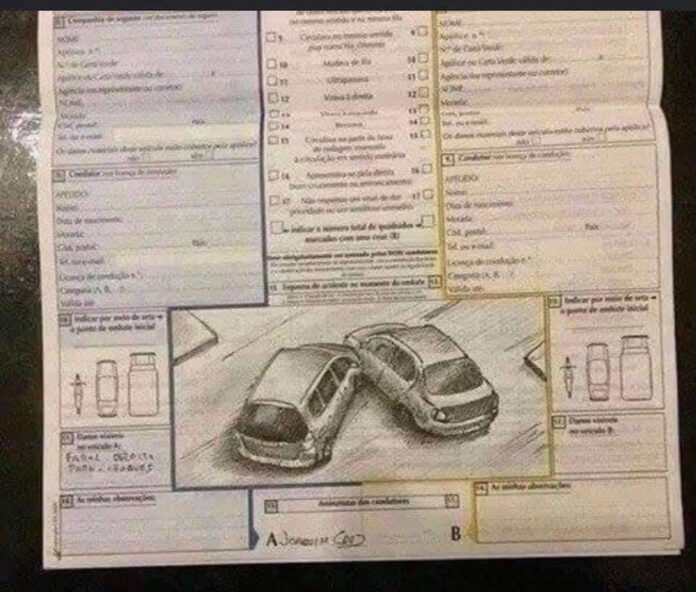 8. Companhia de seguros (ver documento de seguro)
NOME:
Apólice n.º:
N.º de Carta Verde:
Apólice ou Carta Verde válida de: a
Agência (ou representante ou corretor):
NOME:
Morada:
Cód. postal: País:
Tel. ou e-mail:
Os danos materiais deste veículo estão cobertos pela apólice?
não sim
9. Condutor (ver licença de condução)
APELIDO:
Nome:
Data de nascimento:
Morada:
Cód. postal: País:
Tel. ou e-mail:
Licença de condução n.º:
Categoria (A, B, ...):
Válida até:
10. Indicar por meio de seta
o ponto de embate inicial
11. Danos visíveis
no veículo A:
FAROL DIREITO
PARA-CHOQUES
14. As minhas observações:
no mesmo sentido e na mesma fila
9 Circulava no mesmo sentido 9
mas numa fila diferente
10 Mudava de fila 10
11 Ultrapassava 11
12 Virava à direita 12
13 Virava à esquerda 13
14 Recuava 14
15 Circulava na parte da faixa 15
de rodagem reservada
à circulação em sentido contrário
16 Apresentava-se pela direita 16
(num cruzamento ou entroncamento)
17 Não respeitou um sinal de dar 17
prioridade ou um semáforo vermelho
indicar o número total de quadrados
marcados com uma cruz (X)
13. Esquema do acidente no momento do embate 13.
15. Assinaturas dos condutores 15.
A JOAQUIM
B
NOME:
Apólice n.º:
N.º de Carta Verde:
Apólice ou Carta Verde válida de: a
Agência (ou representante ou corretor):
NOME:
Morada:
Cód. postal: País:
Tel. ou e-mail:
Os danos materiais deste veículo estão cobertos pela apólice?
não sim
9. Condutor (ver licença de condução)
APELIDO:
Nome:
Data de nascimento:
Morada:
Cód. postal: País:
Tel. ou e-mail:
Licença de condução n.º:
Categoria (A, B, ...):
Válida até:
10. Indicar por meio de seta
o ponto de embate inicial
11. Danos visíveis
no veículo B:
14. As minhas observações: